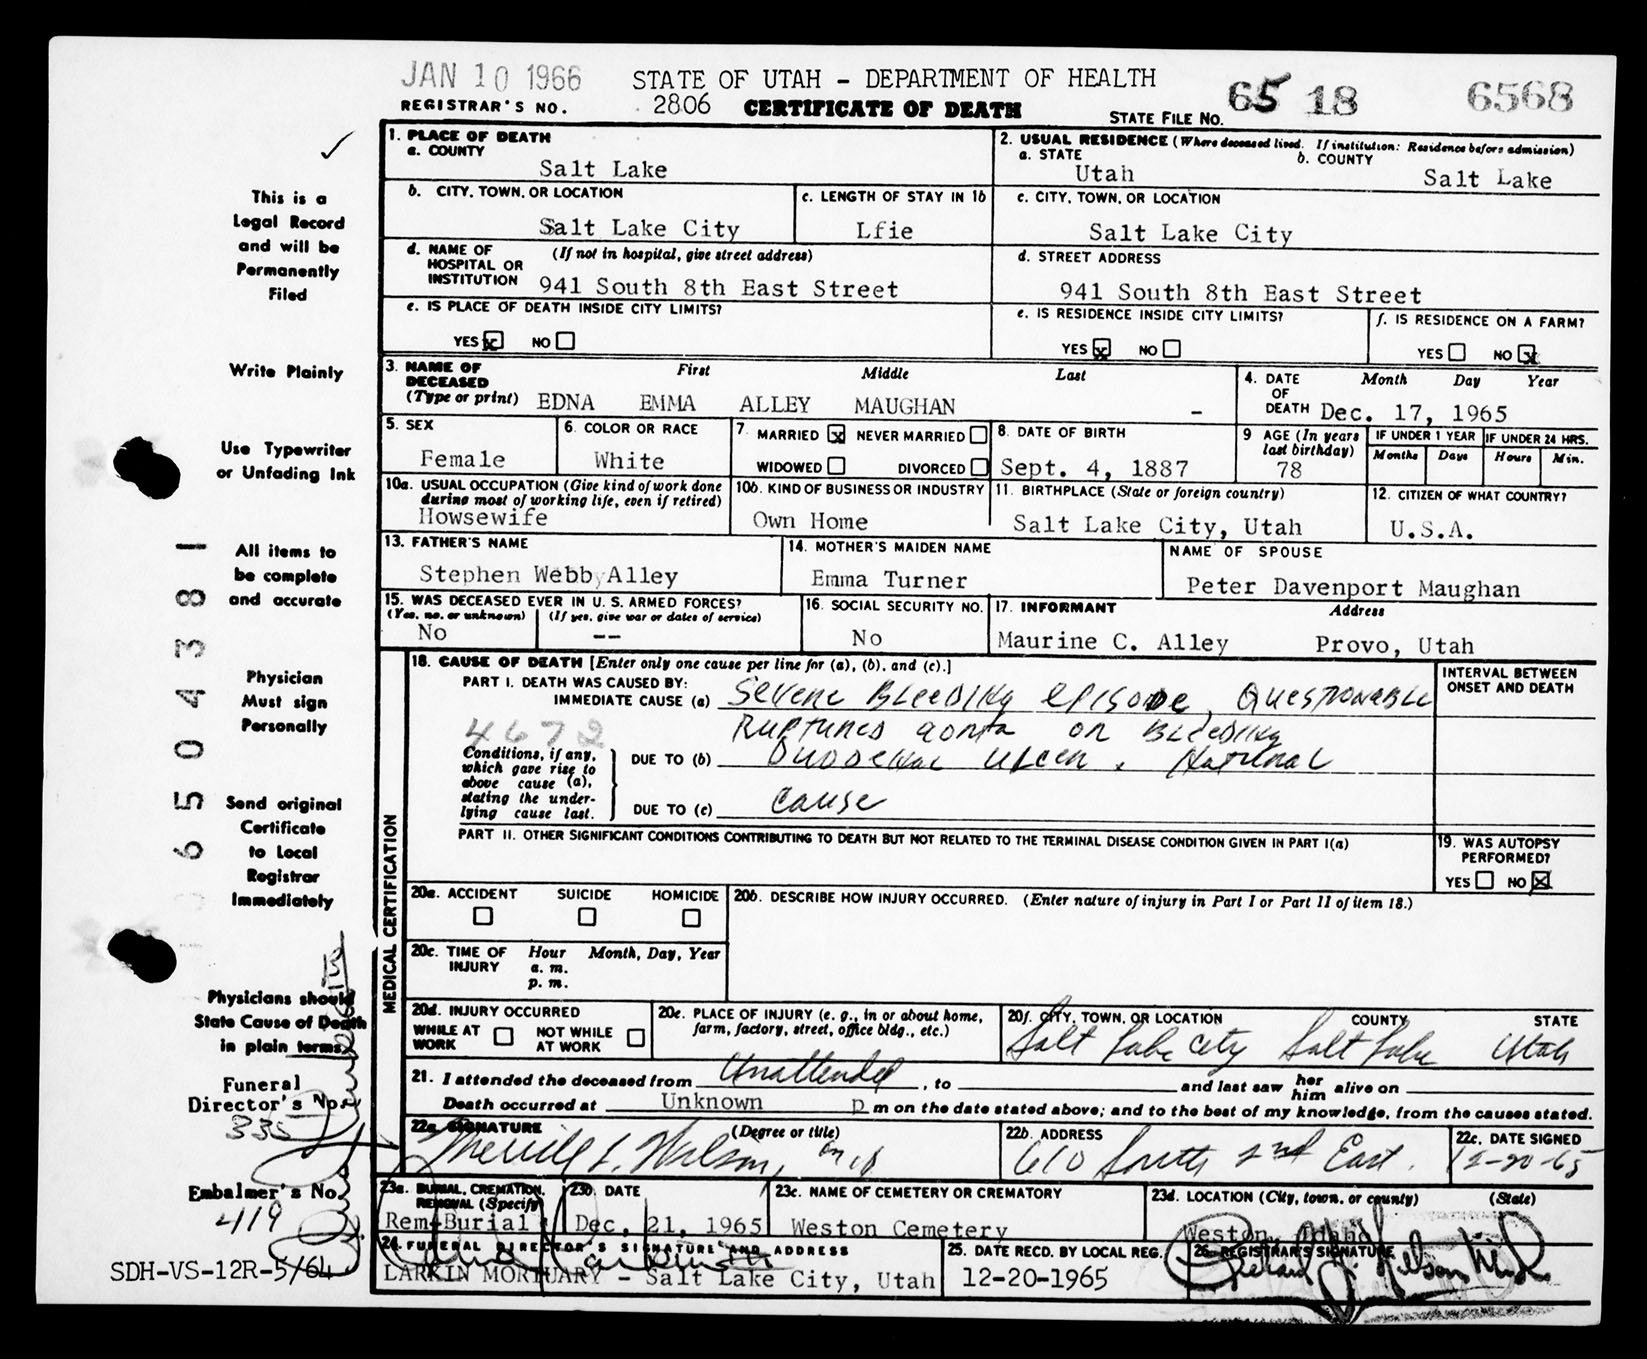 JAN 10 1966 STATE OF UTAH - DEPARTMENT OF HEALTH 65 18 6568
REGISTRAR'S NO. 2806 CERTIFICATE OF DEATH STATE FILE NO.
This is a
Legal Record
and will be
Permanently
Filed
Write Plainly
Use Typewriter
or Unfading Ink
All items to
be complete
and accurate
Physician
Must sign
Personally
Send original
Certificate
to Local
Registrar
Immediately
Physicians should
State Cause of Death
in plain terms
Funeral
Director's No.
335
Embalmer's No.
419
SDH-VS-12R-5/64
6504381
1. PLACE OF DEATH
a. COUNTY
Salt Lake
2. USUAL RESIDENCE (Where deceased lived. If institution: Residence before admission)
a. STATE b. COUNTY
Utah Salt Lake
b. CITY, TOWN, OR LOCATION
Salt Lake City
c. LENGTH OF STAY IN 1b
Lfie
c. CITY, TOWN, OR LOCATION
Salt Lake City
d. NAME OF (If not in hospital, give street address)
HOSPITAL OR
INSTITUTION 941 South 8th East Street
d. STREET ADDRESS
941 South 8th East Street
e. IS PLACE OF DEATH INSIDE CITY LIMITS?
YES x NO
e. IS RESIDENCE INSIDE CITY LIMITS?
YES x NO
f. IS RESIDENCE ON A FARM?
YES NO x
3. NAME OF First Middle Last
DECEASED
(Type or print) EDNA EMMA ALLEY MAUGHAN -
4. DATE Month Day Year
OF
DEATH Dec. 17, 1965
5. SEX
Female
6. COLOR OR RACE
White
7. MARRIED x NEVER MARRIED
WIDOWED DIVORCED
8. DATE OF BIRTH
Sept. 4, 1887
9 AGE (In years
last birthday)
78
IF UNDER 1 YEAR IF UNDER 24 HRS.
Months Days Hours Min.
10a. USUAL OCCUPATION (Give kind of work done
during most of working life, even if retired)
Howsewife
10b. KIND OF BUSINESS OR INDUSTRY
Own Home
11. BIRTHPLACE (State or foreign country)
Salt Lake City, Utah
12. CITIZEN OF WHAT COUNTRY?
U.S.A.
13. FATHER'S NAME
Stephen Webb Alley
14. MOTHER'S MAIDEN NAME
Emma Turner
NAME OF SPOUSE
Peter Davenport Maughan
15. WAS DECEASED EVER IN U.S. ARMED FORCES?
(Yes, no, or unknown) (If yes, give war or dates of service)
No --
16. SOCIAL SECURITY NO.
No
17. INFORMANT Address
Maurine C. Alley Provo, Utah
MEDICAL CERTIFICATION
18. CAUSE OF DEATH [Enter only one cause per line for (a), (b), and (c).]
INTERVAL BETWEEN
ONSET AND DEATH
PART I. DEATH WAS CAUSED BY:
IMMEDIATE CAUSE (a) Severe Bleeding episode, Questionable
4672 Ruptured aorta or Bleeding
Conditions, if any,
which gave rise to
above cause (a),
stating the under-
lying cause last.
DUE TO (b) Duodenal ulcer. Natural
DUE TO (c) cause
PART II. OTHER SIGNIFICANT CONDITIONS CONTRIBUTING TO DEATH BUT NOT RELATED TO THE TERMINAL DISEASE CONDITION GIVEN IN PART I(a)
19. WAS AUTOPSY
PERFORMED?
YES NO x
20a. ACCIDENT SUICIDE HOMICIDE
20b. DESCRIBE HOW INJURY OCCURRED. (Enter nature of injury in Part I or Part II of item 18.)
20c. TIME OF Hour Month, Day, Year
INJURY a. m.
p. m.
20d. INJURY OCCURRED
WHILE AT NOT WHILE
WORK AT WORK
20e. PLACE OF INJURY (e. g., in or about home,
farm, factory, street, office bldg., etc.)
20f. CITY, TOWN, OR LOCATION COUNTY STATE
Salt Lake City Salt Lake Utah
21. I attended the deceased from Unattended, to and last saw her him alive on
Death occurred at Unknown p m on the date stated above; and to the best of my knowledge, from the causes stated.
22a. SIGNATURE (Degree or title)
Merrill L. Wilson, M.D.
22b. ADDRESS
610 South 2nd East.
22c. DATE SIGNED
12-20-65
23a. BURIAL, CREMATION,
REMOVAL (Specify)
Rem-Burial
23b. DATE
Dec, 21, 1965
23c. NAME OF CEMETERY OR CREMATORY
Weston Cemetery
23d. LOCATION (City, town, or county) (State)
Weston, Idaho
24. FUNERAL DIRECTOR'S SIGNATURE AND ADDRESS
LARKIN MORTUARY - Salt Lake City, Utah
25. DATE RECD. BY LOCAL REG.
12-20-1965
26. REGISTRAR'S SIGNATURE